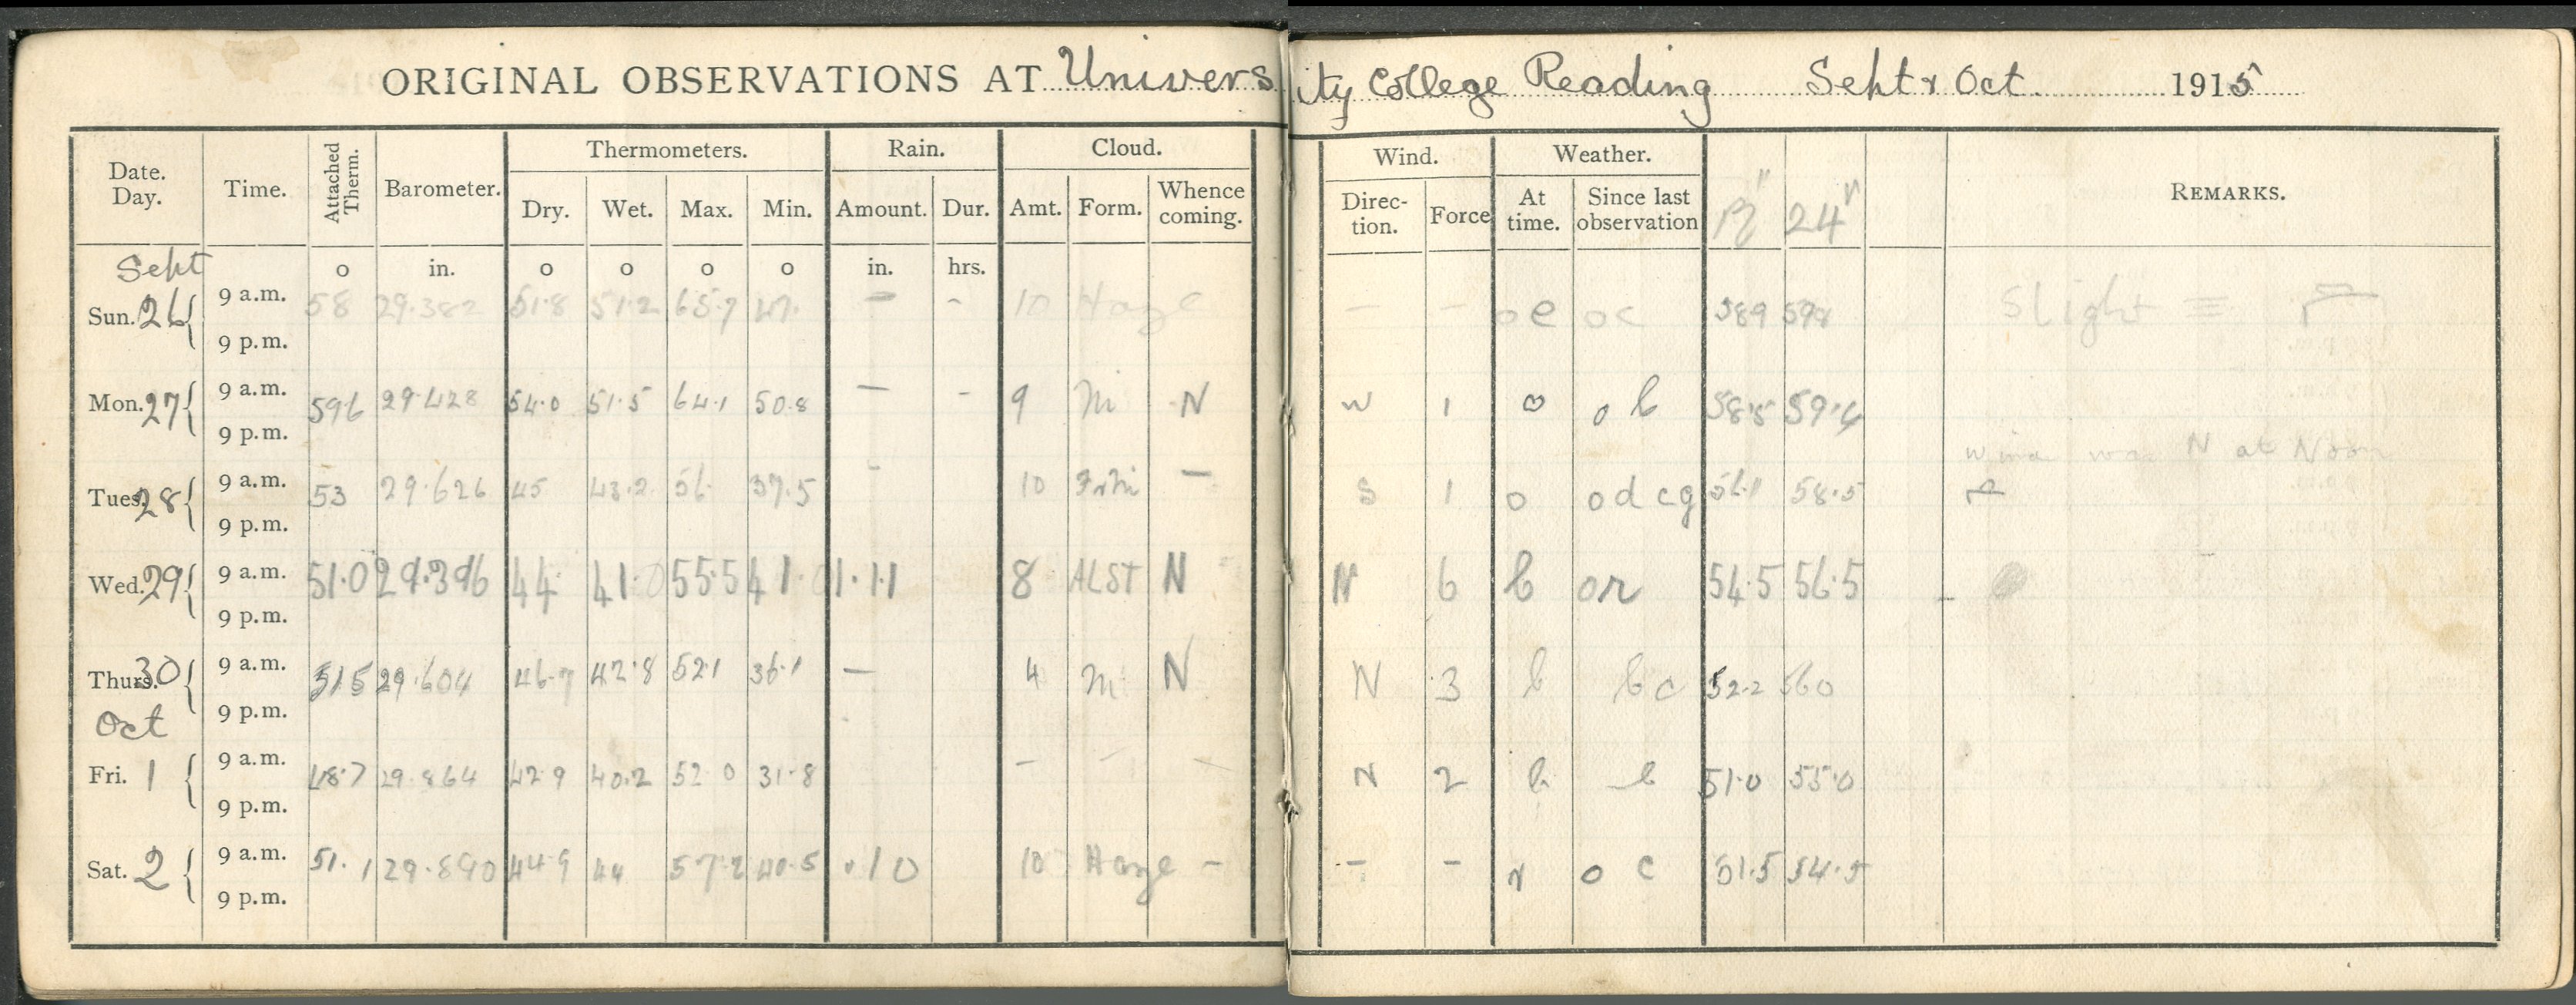 ORIGINAL OBSERVATIONS AT University College Reading Sept & Oct. 1915
Date. Day. Time. Attached Therm. Barometer. Thermometers. Rain. Cloud. Wind. Weather. REMARKS.
Dry. Wet. Max. Min. Amount. Dur. Amt. Form. Whence coming. Direction. Force At time. Since last observation 12" 24"
Sept o in. o o o o in. hrs.
Sun. 26 9 a.m. 58 29.382 51.8 51.2 65.7 47. — - 10 Haze — — o e o c 58.9 59.8 Slight ≡
9 p.m.
Mon. 27 9 a.m. 59.6 29.428 54.0 51.5 64.1 50.8 — - 9 Ni N W 1 o o b 58.5 59.4
9 p.m.
Wind was N at Noon
Tues. 28 9 a.m. 53 29.626 45 43.2 56. 37.5 - 10 FrNi — S 1 o o d c g 56.1 58.5
9 p.m.
Wed. 29 9 a.m. 51.0 29.396 44. 41.0 55.5 41.0 1.11 8 ALST N N 6 b or 54.5 56.5
9 p.m.
Thurs. 30 9 a.m. 51.5 29.604 46.7 42.8 52.1 36.1 — 4 Ni N N 3 b b c 52.2 56.0
9 p.m.
Oct
Fri. 1 9 a.m. 48.7 29.864 42.9 40.2 52.0 31.8 — — N 2 b b 51.0 55.0
9 p.m.
Sat. 2 9 a.m. 51.1 29.890 44.9 44 57.2 40.5 .10 10 Haze - — - r o c 51.5 54.5
9 p.m.